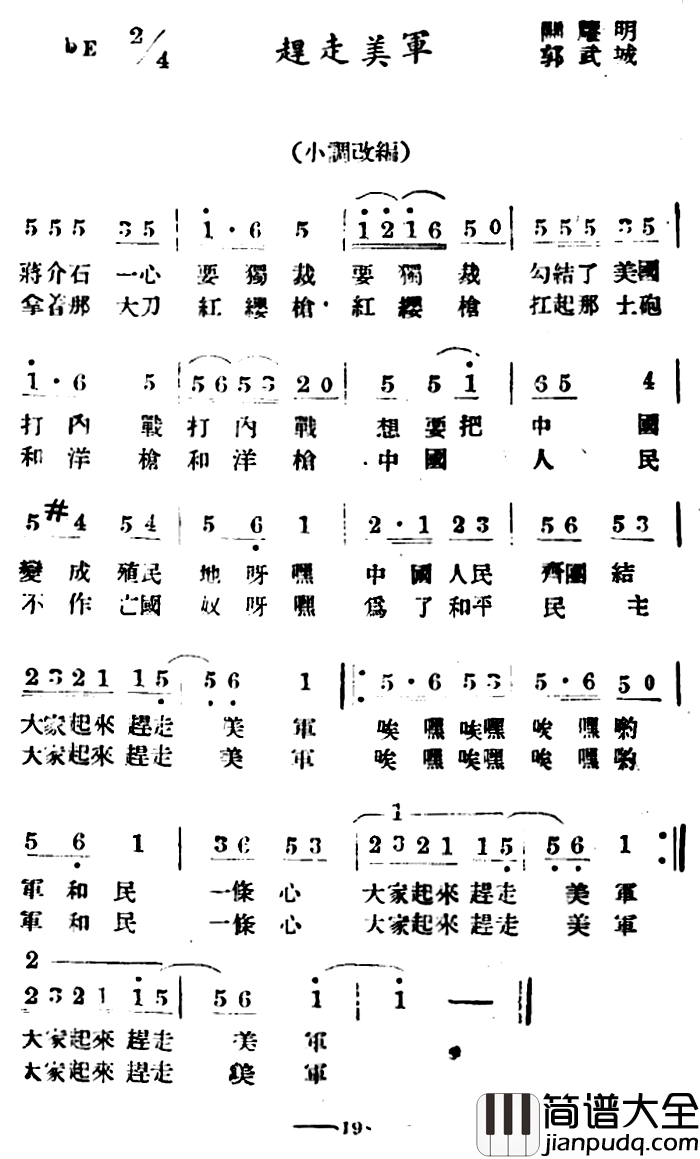 bE 2/4 趕走美軍 關耀明
郭武城
(小調改編)
5 5 5 3 5 | 1 · 6 5 | 1 2 1 6 5 0 | 5 5 5 3 5 |
蔣介石一心 要獨裁 要獨裁 勾結了美國
拿着那大刀 紅纓槍 紅纓槍 扛起那土砲
1 · 6 5 | 5 6 5 3 2 0 | 5 5 1 | 6 5 4 |
打內戰打內戰 想要把中國
和洋槍和洋槍 中國人民
5 #4 5 4 | 5 6 1 | 2 · 1 2 3 | 5 6 5 3 |
變成殖民地呀嘿 中國人民 齊團結
不作亡國奴呀嘿 爲了和平民主
2 3 2 1 1 5 | 5 6 1 |: 5 · 6 5 3 | 5 · 6 5 0 |
大家起來趕走美軍 唉嘿唉嘿唉嘿喲
大家起來趕走美軍 唉嘿唉嘿唉嘿喲
5 6 1 | 3 6 5 3 | 1 2 3 2 1 1 5 | 5 6 1 :|
軍和民 一條心 大家起來趕走美軍
軍和民 一條心 大家起來趕走美軍
2
2 3 2 1 1 5 | 5 6 1 | 1 — ||
大家起來趕走美軍
大家起來趕走美軍
19
简谱大全
jianpudq.com